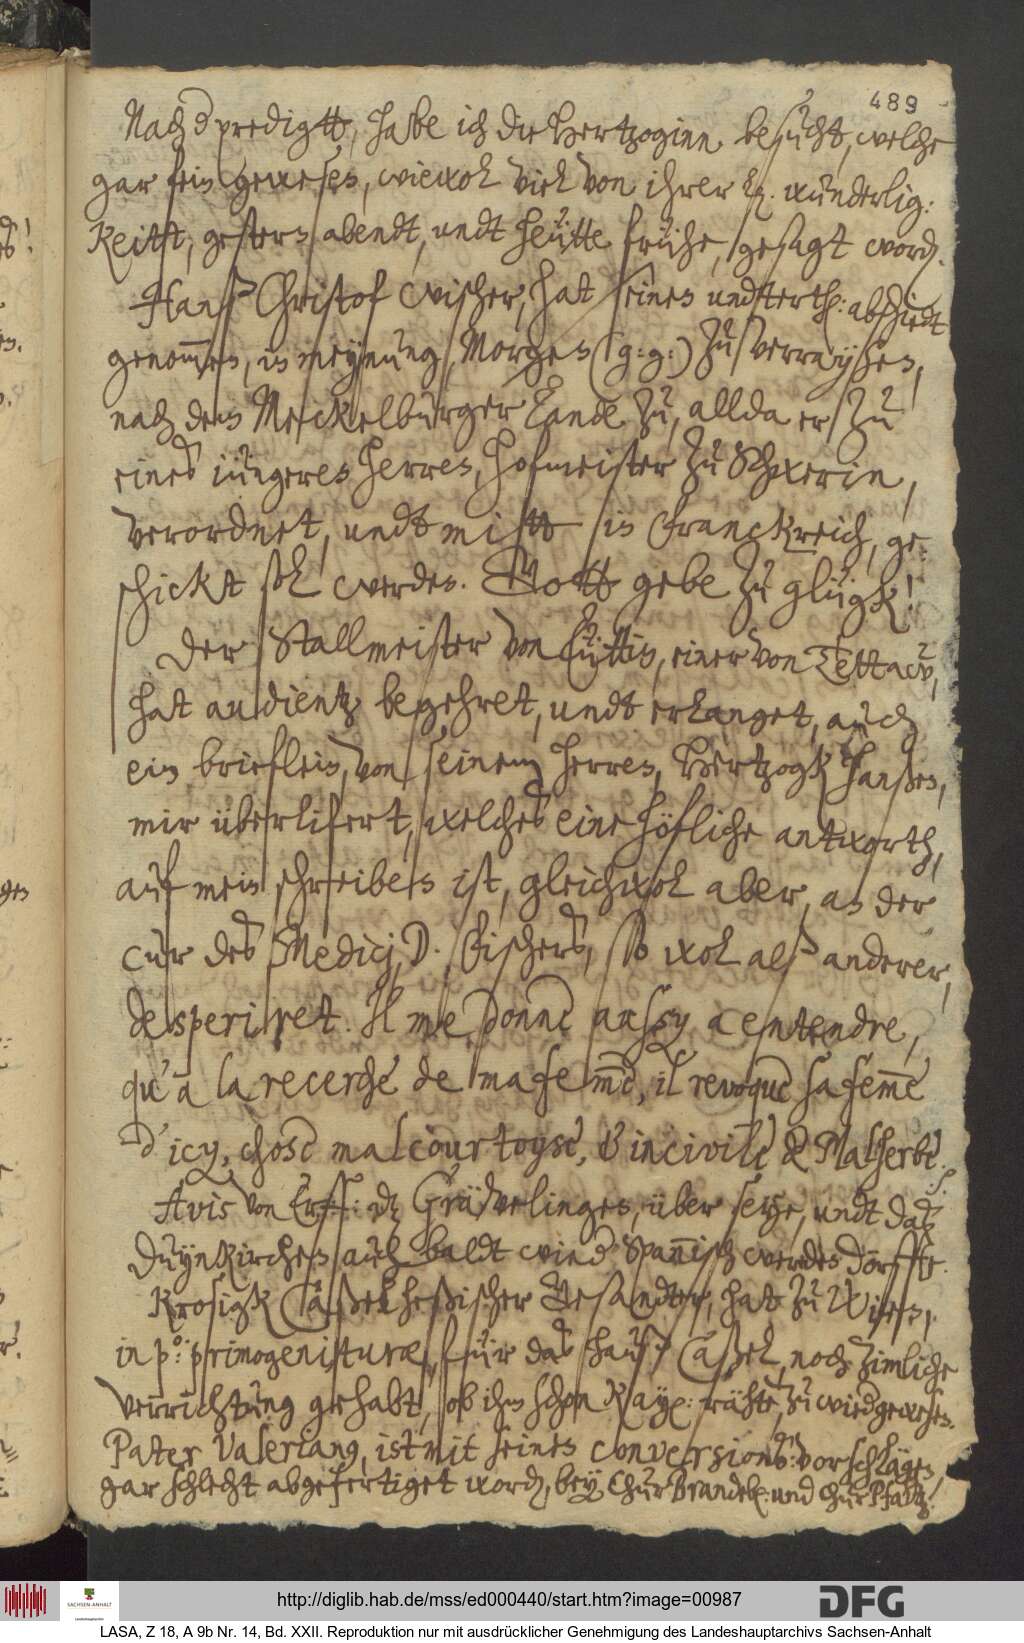 489
Nach d predigtt, habe ich die Hertzoginn besucht, welche
gar fein gewesen, wiewol viel von ihrer wunderlig:
keitt, gestern abendt, undt heütte frühe, gesagt word.
Hanß Christof Wischer, hat seinen undterth: abschiedt
genommen, in meynung, Morgen (g: g:) zu verraysen,
nach dem Meckelburger Lande zu, allda er zu
eines iüngeren Herren, Hofmeister zu Schwerin,
verordnet, undt mitt in Franckreich, ge-
schickt sol werden. Gott gebe zu glügk!
Der Stallmeister von Eüttin, einer von Tettaw,
hat audientz begehret, undt erlanget, auch
ein brieflein, von seinem Herren, Hertzogk Hanßen,
mir überlifert, welches eine höfliche antworth,
auf mein schreiben ist, gleichwol aber, an der
cur des Medicj, D. Fischers, so wol alß anderer,
desperiret. Il me donne aussy a entendre,
qu'a la recerche de ma femme, il revoque sa femme
d'icy, chose mal courtoyse, & incivile de Malherbe.
Avis von Erff: dz Grävelingen, über seye, undt daß
Duynkirchen auch baldt wied Spannisch werden dörffte.
Krosigk Caßelheßischer Gesandter, hat zu Wien,
in p.o: primogenituræ, für das hauß Caßel, noch zimliche
verrichtung gehabt, ob ihm schon Kay: rähte, zu wied gewesen.
Pater Valerianq, ist mit seinen conversions: vorschlägen,
gar schlecht abgefertiget word, bey ChurBrandeb: und ChurPfaltz!
http://diglib.hab.de/mss/ed000440/start.htm?image=00987
SACHSEN-ANHALT
Landeshauptarchiv
DFG
LASA, Z 18, A 9b Nr. 14, Bd. XXII. Reproduktion nur mit ausdrücklicher Genehmigung des Landeshauptarchivs Sachsen-Anhalt